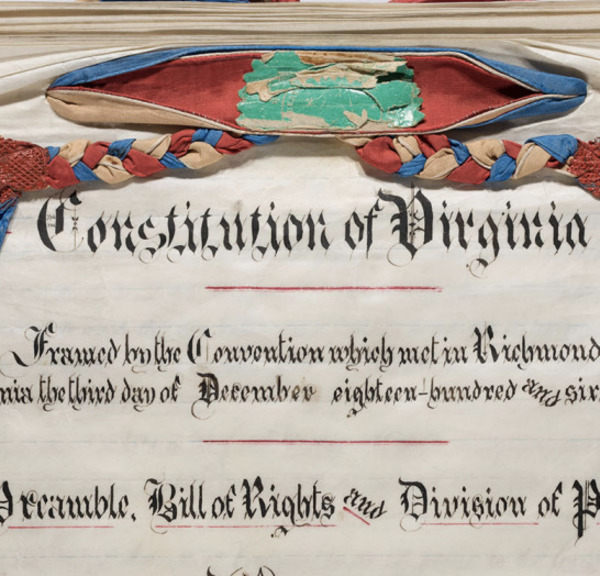 Constitution of Virginia
Framed by the Convention which met in Richmond
nia the third day of December eighteen-hundred and six
Preamble, Bill of Rights and Division of P